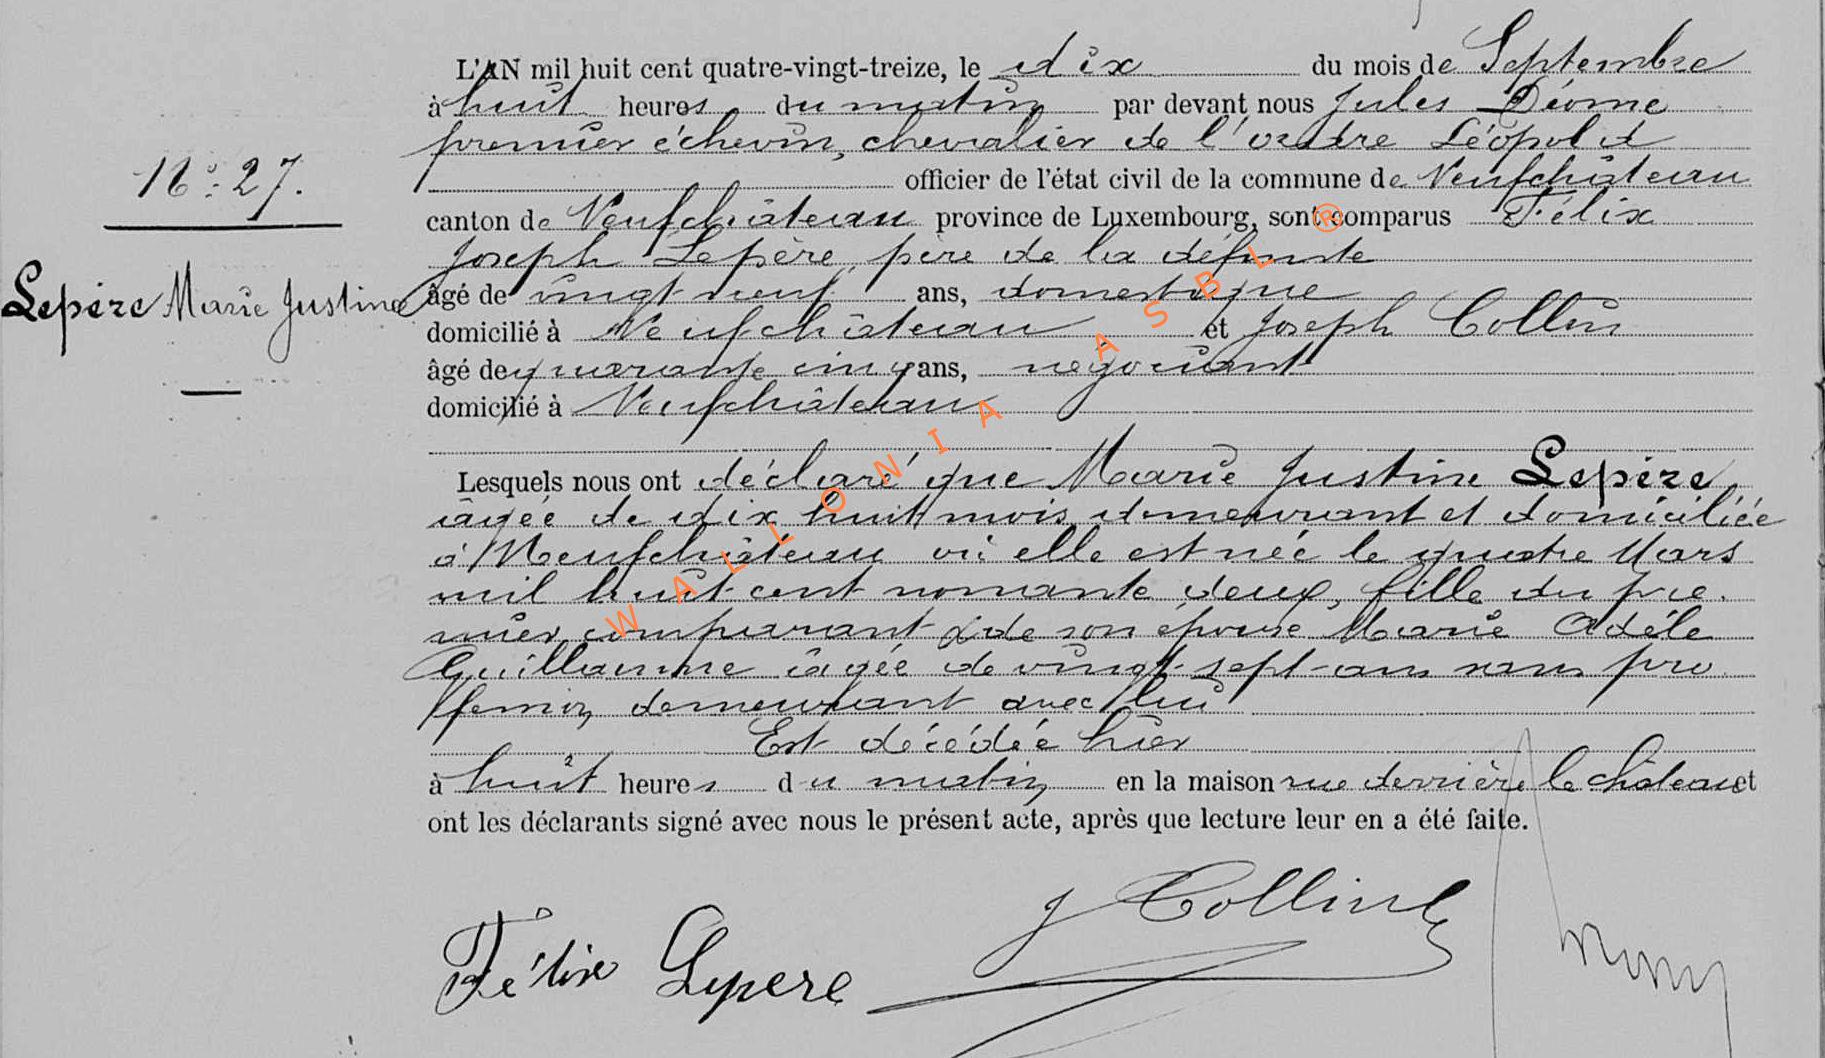 L'AN mil huit cent quatre-vingt-treize, le dix du mois de Septembre
à huit heures du matin par devant nous Jules Déome
premier échevin, chevalier de l'ordre Léopold
officier de l'état civil de la commune de Neufchâteau
N° 27.
canton de Neufchâteau province de Luxembourg, sont comparus Félix
Joseph Lepère, père de la défunte
Lepère Marie Justine
âgé de vingt neuf ans, domestique
domicilié à Neufchâteau et Joseph Collin
âgé de quarante cinq ans, négociant
domicilié à Neufchâteau
Lesquels nous ont déclaré que Marie Justine Lepère,
âgée de dix huit mois demeurant et domiciliée
à Neufchâteau où elle est née le quatre Mars
mil huit cent nonante deux, fille du pre.
mier comparant & de son épouse Marie Adèle
Guillaume âgée de vingt-sept-ans sans pro
fession, demeurant avec lui
Est décédée hier
à huit heures du matin en la maison rue derrière le château et
ont les déclarants signé avec nous le présent acte, après que lecture leur en a été faite.
J Collin
Félix Lepere
WALLONIA ASBL ®